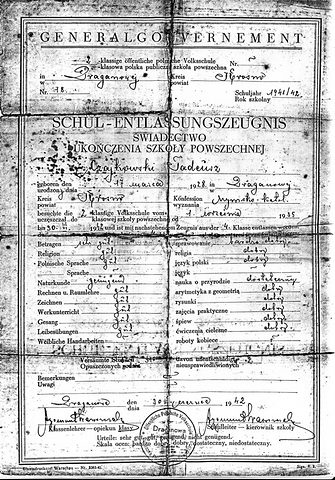 GENERALGOUVERNEMENT
2 -klassige öffentliche polnische Volksschule
-klasowa polska publiczna szkoła powszechna Nr
in w Draganowej Kreis powiat Krosno
Nr. 18. Schuljahr Rok szkolny 1941/42
SCHUL-ENTLASSUNGSZEUGNIS
ŚWIADECTWO
UKOŃCZENIA SZKOŁY POWSZECHNEJ
Czajkowski Tadeusz
geboren den urodzony dnia 17 marca 1928 in w Draganowej
Kreis powiat Krosno Konfession wyznania rzymsko-kat.
besuchte die 2 klassige Volksschule vom 1. września 1935
uczęszczał do klasowej szkoły powszechnej od
bis do 30 1942 und ist mit nachstehendem Zeugnis aus der 4 Klasse entlassen
Betragen sehr gut sprawowanie bardzo dobry
Religion gut religia dobry
Polnische Sprache gut język polski dobry
Sprache język
Naturkunde genügend nauka o przyrodzie dostateczny
Rechnen u. Raumlehre gut arytmetyka z geometrią dobry
Zeichnen gut rysunki dobry
Werkunterricht gut zajęcia praktyczne dobry
Gesang gut śpiew dobry
Leibesübungen gut ćwiczenia cielesne dobry
Weibliche Handarbeiten roboty kobiece
Versäumte Stunden davon unentschuldigt
Opuszczonych godzin nieusprawiedliwionych
Bemerkungen
Uwagi
den dnia 30 czerwca 1942
Klassenlehrer - opiekun klasy Schulleiter - kierownik szkoły
Urteile: sehr gut, gut, genügend, nicht genügend.
Skala ocen: bardzo dobry, dobry, dostateczny, niedostateczny.